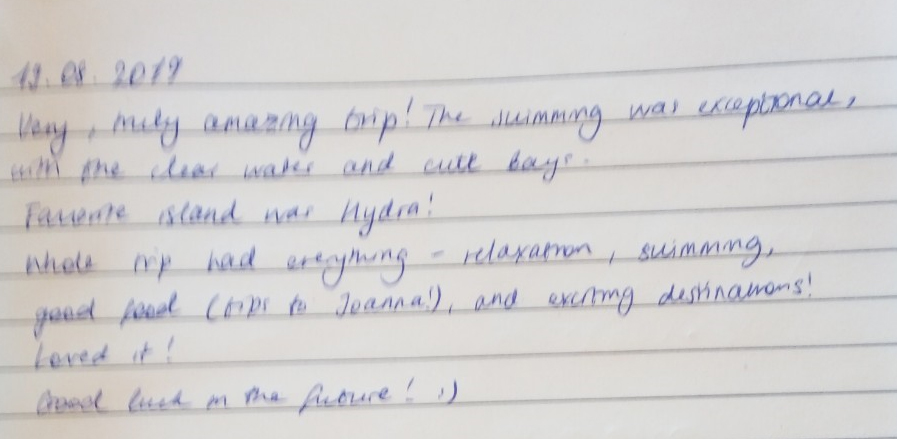 19.08.2019
Very, truly amazing trip! The swimming was exceptional,
with the clear water and cute bays.
Favorite island was Hydra!
Whole trip had everything - relaxation, swimming,
good food (trips to Joanna!), and exciting destinations!
Loved it!
Good luck in the future! :)